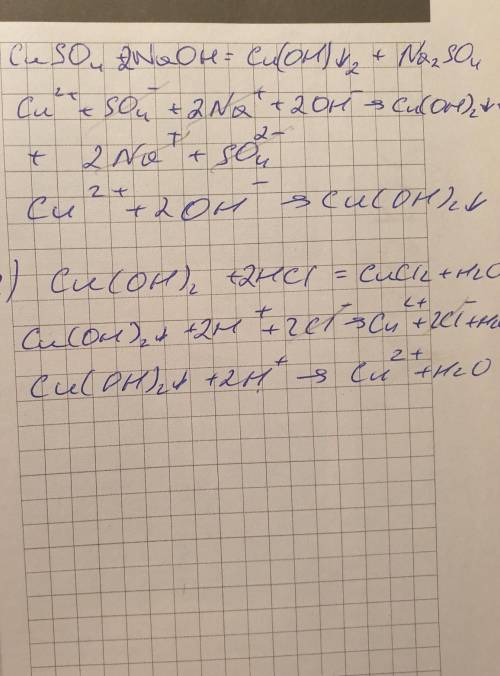 CuSO₄ + 2NaOH = Cu(OH)↓₂ + Na₂SO₄
Cu²⁺ + SO₄⁻ + 2Na⁺ + 2OH⁻ → Cu(OH)₂↓
+ 2Na⁺ + SO₄²⁻
Cu²⁺ + 2OH⁻ → Cu(OH)₂↓
) Cu(OH)₂ + 2HCl = CuCl₂ + H₂O
Cu(OH)₂↓ + 2H⁺ + 2Cl⁻ → Cu²⁺ + 2Cl⁻ + H₂
Cu(OH)₂↓ + 2H⁺ → Cu²⁺ + H₂O